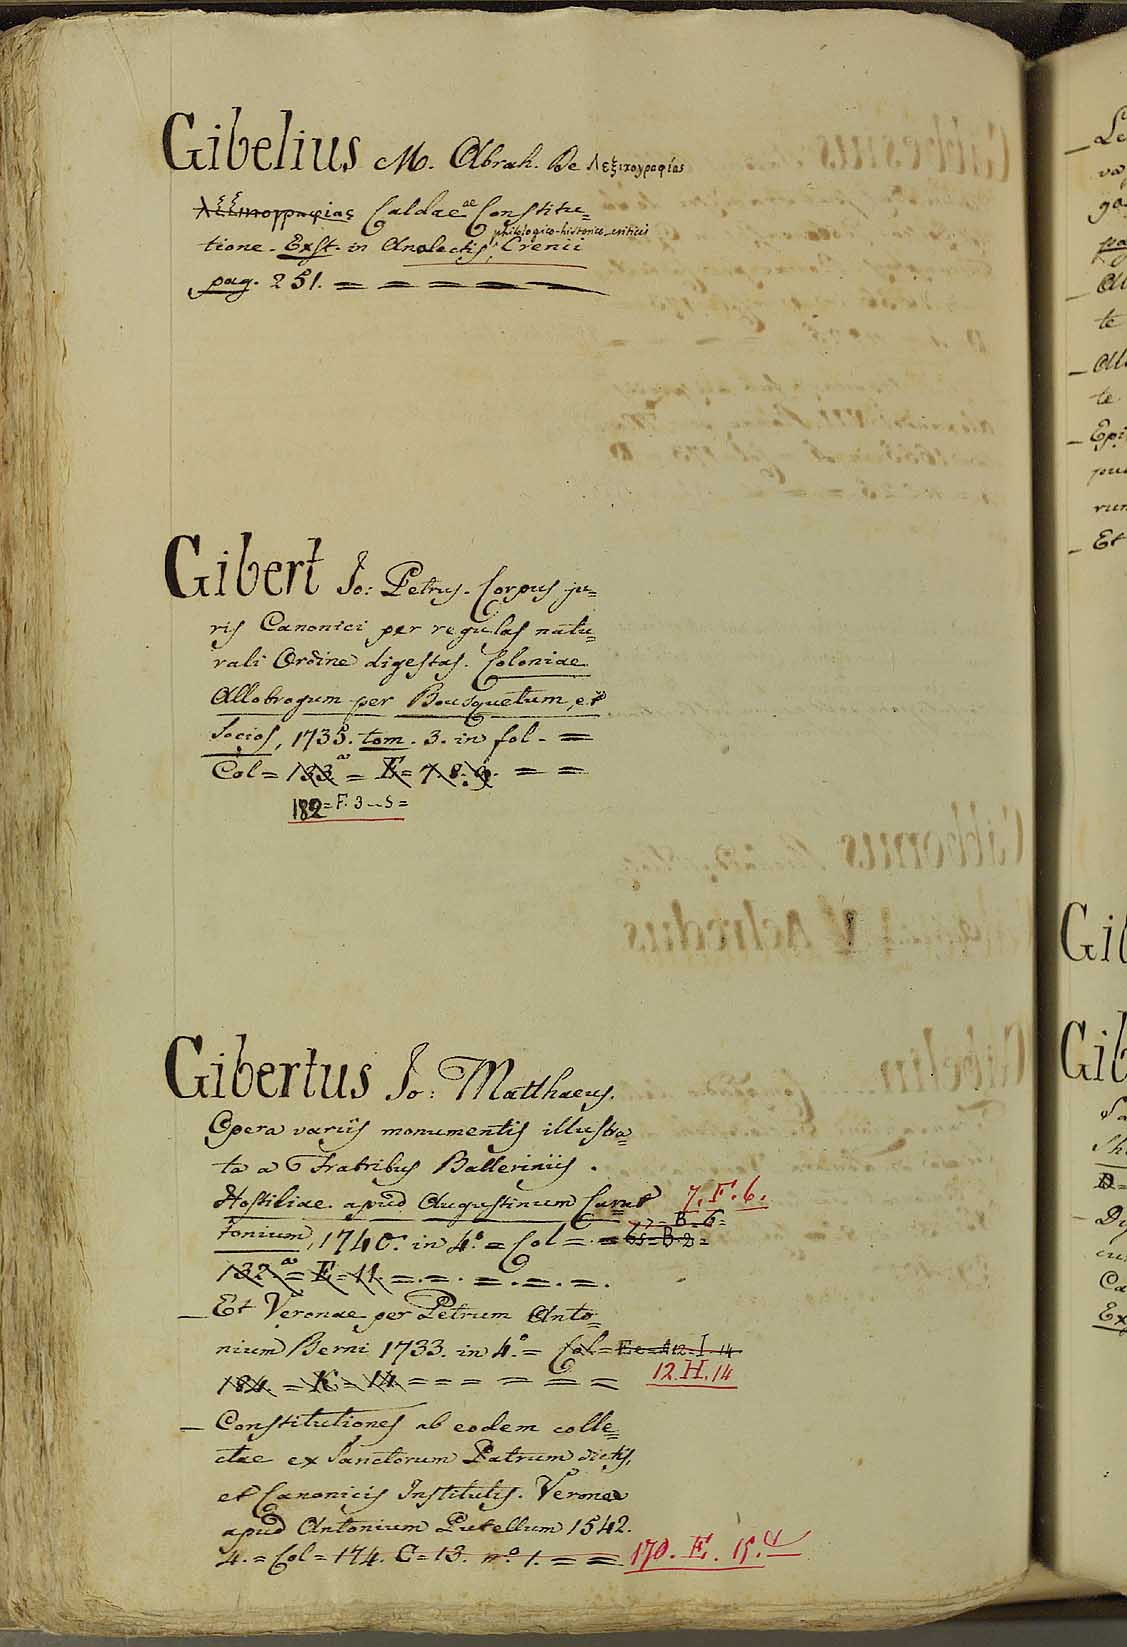 Gibelius M. Abrah. De λεξικογραφίας
Caldaeae Constitu=
tione. Exst. in Analectis philologico-historico-criticis Crenii
pag. 251. = = = = = =
Gibert Jo: Petrus. Corpus ju=
ris Canonici per regulas natu=
rali Ordine digestas. Coloniae
Allobrogum per Bousquetum, et
Socios, 1735. tom. 3. in fol. =
Col = 133 = E = 7. 8. 9. = =
182 = F. 3 - 5 =
Gibertus Jo: Matthaeus.
Opera variis monumentis illustra=
ta a Fratribus Balleriniis.
Hostiliae. apud Augustinum Carat
7. F. 6.
tonium, 1740. in 4.° = Col =
77 = B = 6 =
65 = B. 2 =
132. = E = 11. = . = . = . = . = .
_ Et Veronae per Petrum Anto=
nium Berni 1733. in 4.° = Col = 12. I. 14
184. = K = 14. = = = = = = =
12. H. 14
_ Constitutiones ab eodem colle=
ctae ex Sanctorum Patrum dictis,
et Canonicis Institutis. Veronae
apud Antonium Putellum 1542.
4. = Col = 174. C = 13. n.° 1. = =
170. E. 15.
Le
va
te
te
_ Epi
rum
_ Et
Gib
Gib
Ca
Ex